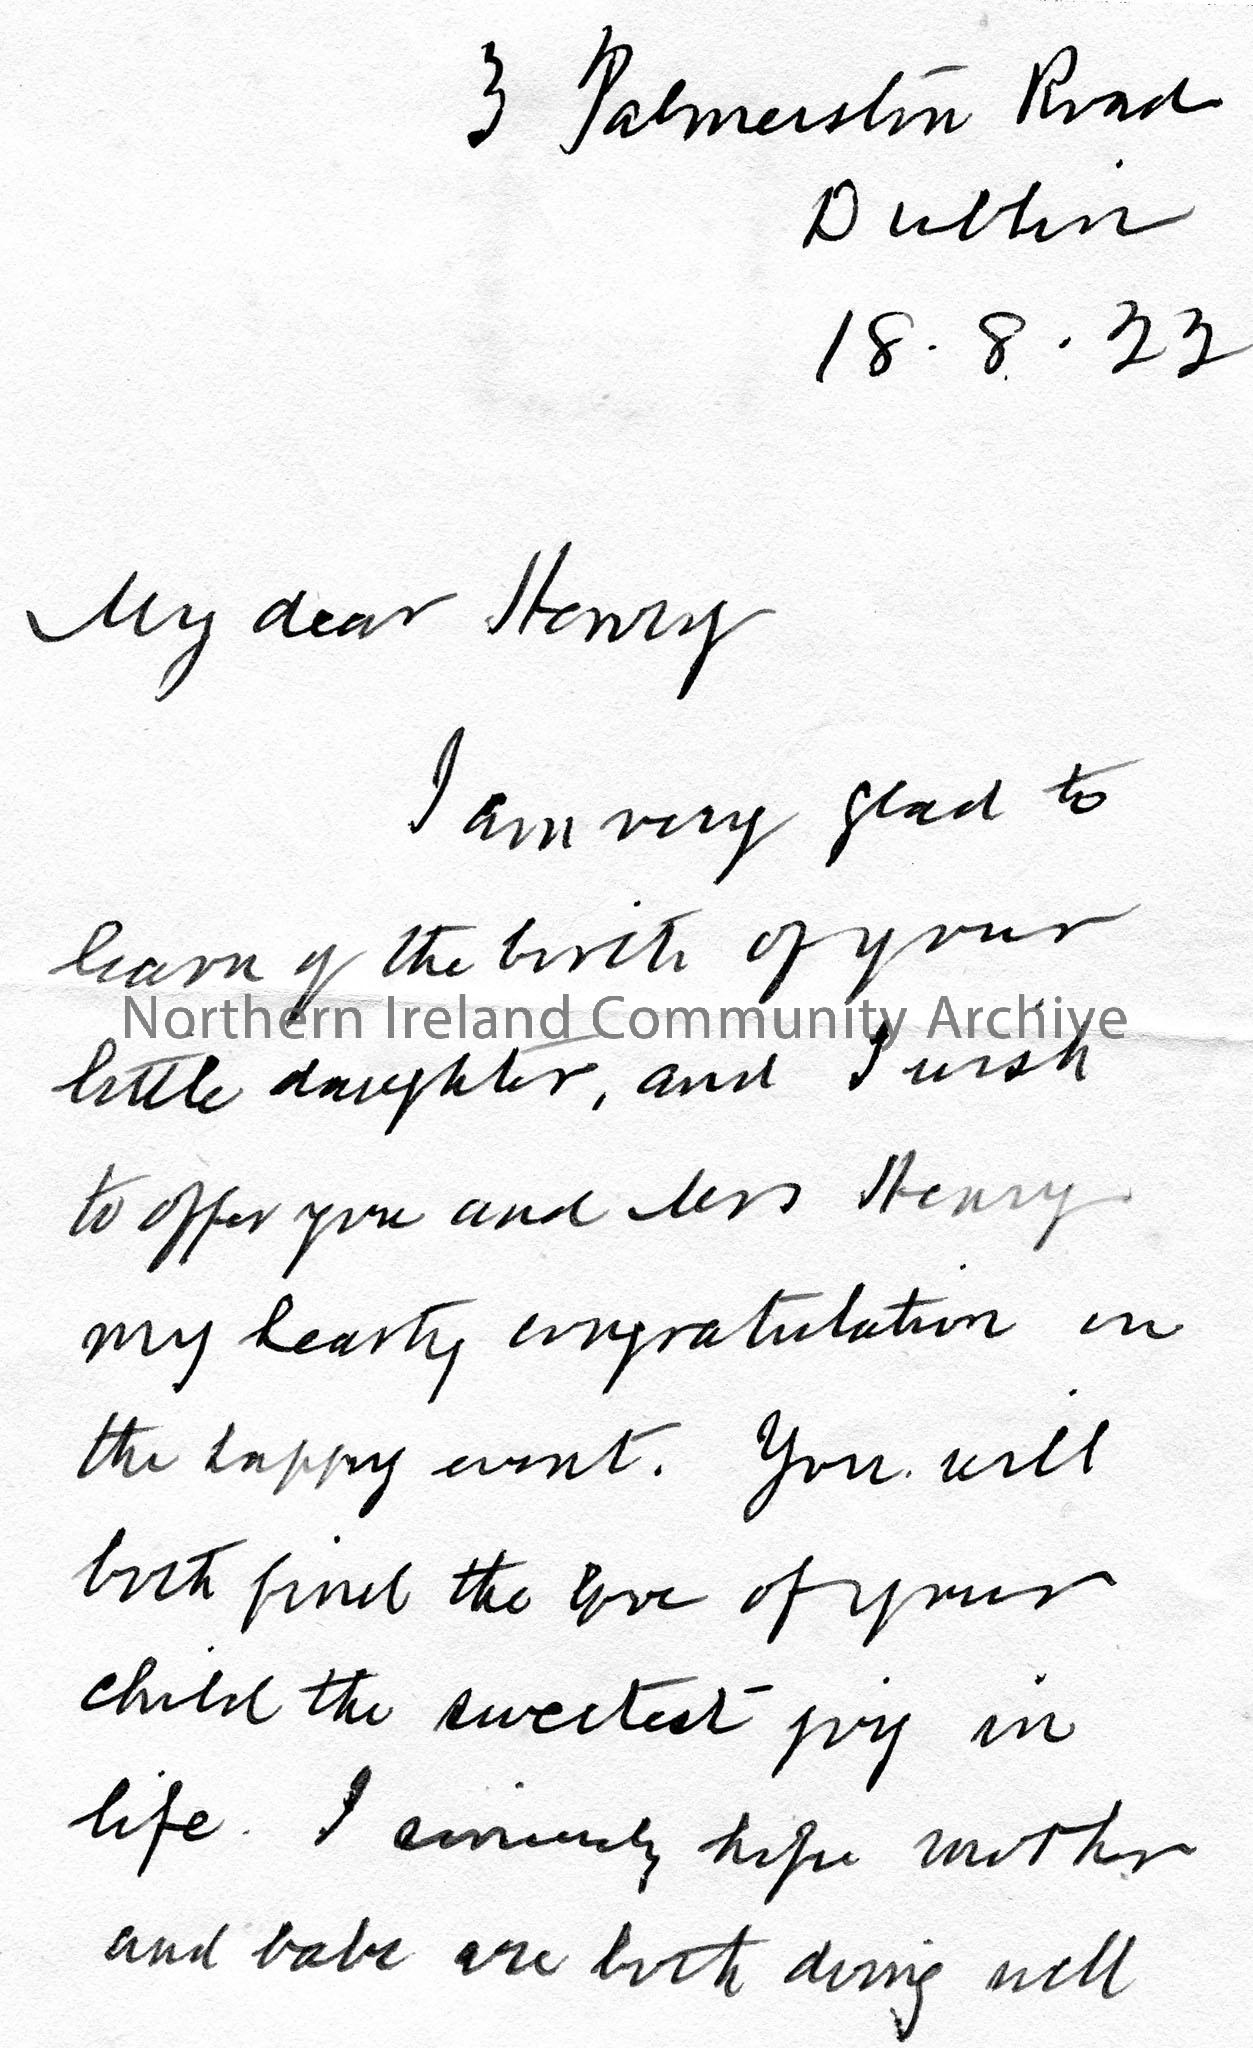 3 Palmerston Road
Dublin
18.8.33
My dear Henry
I am very glad to
learn of the birth of your
Northern Ireland Community Archive
little daughter, and I wish
to offer you and Mrs Henry
my hearty congratulation on
the happy event. You will
both find the love of your
child the sweetest joy in
life. I sincerely hope mother
and babe are both doing well